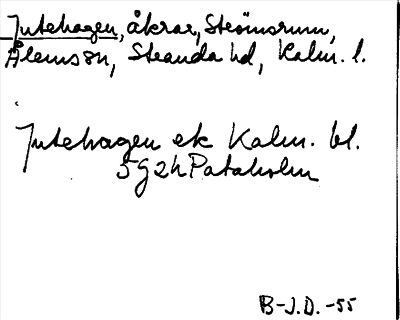 Jutehagen, åkrar, Strömsrum,
Ålems sn, Stranda hd, Kalm. l.
Jutehagen ek Kalm. bl.
5G2h Pataholm
B-J.D. -55